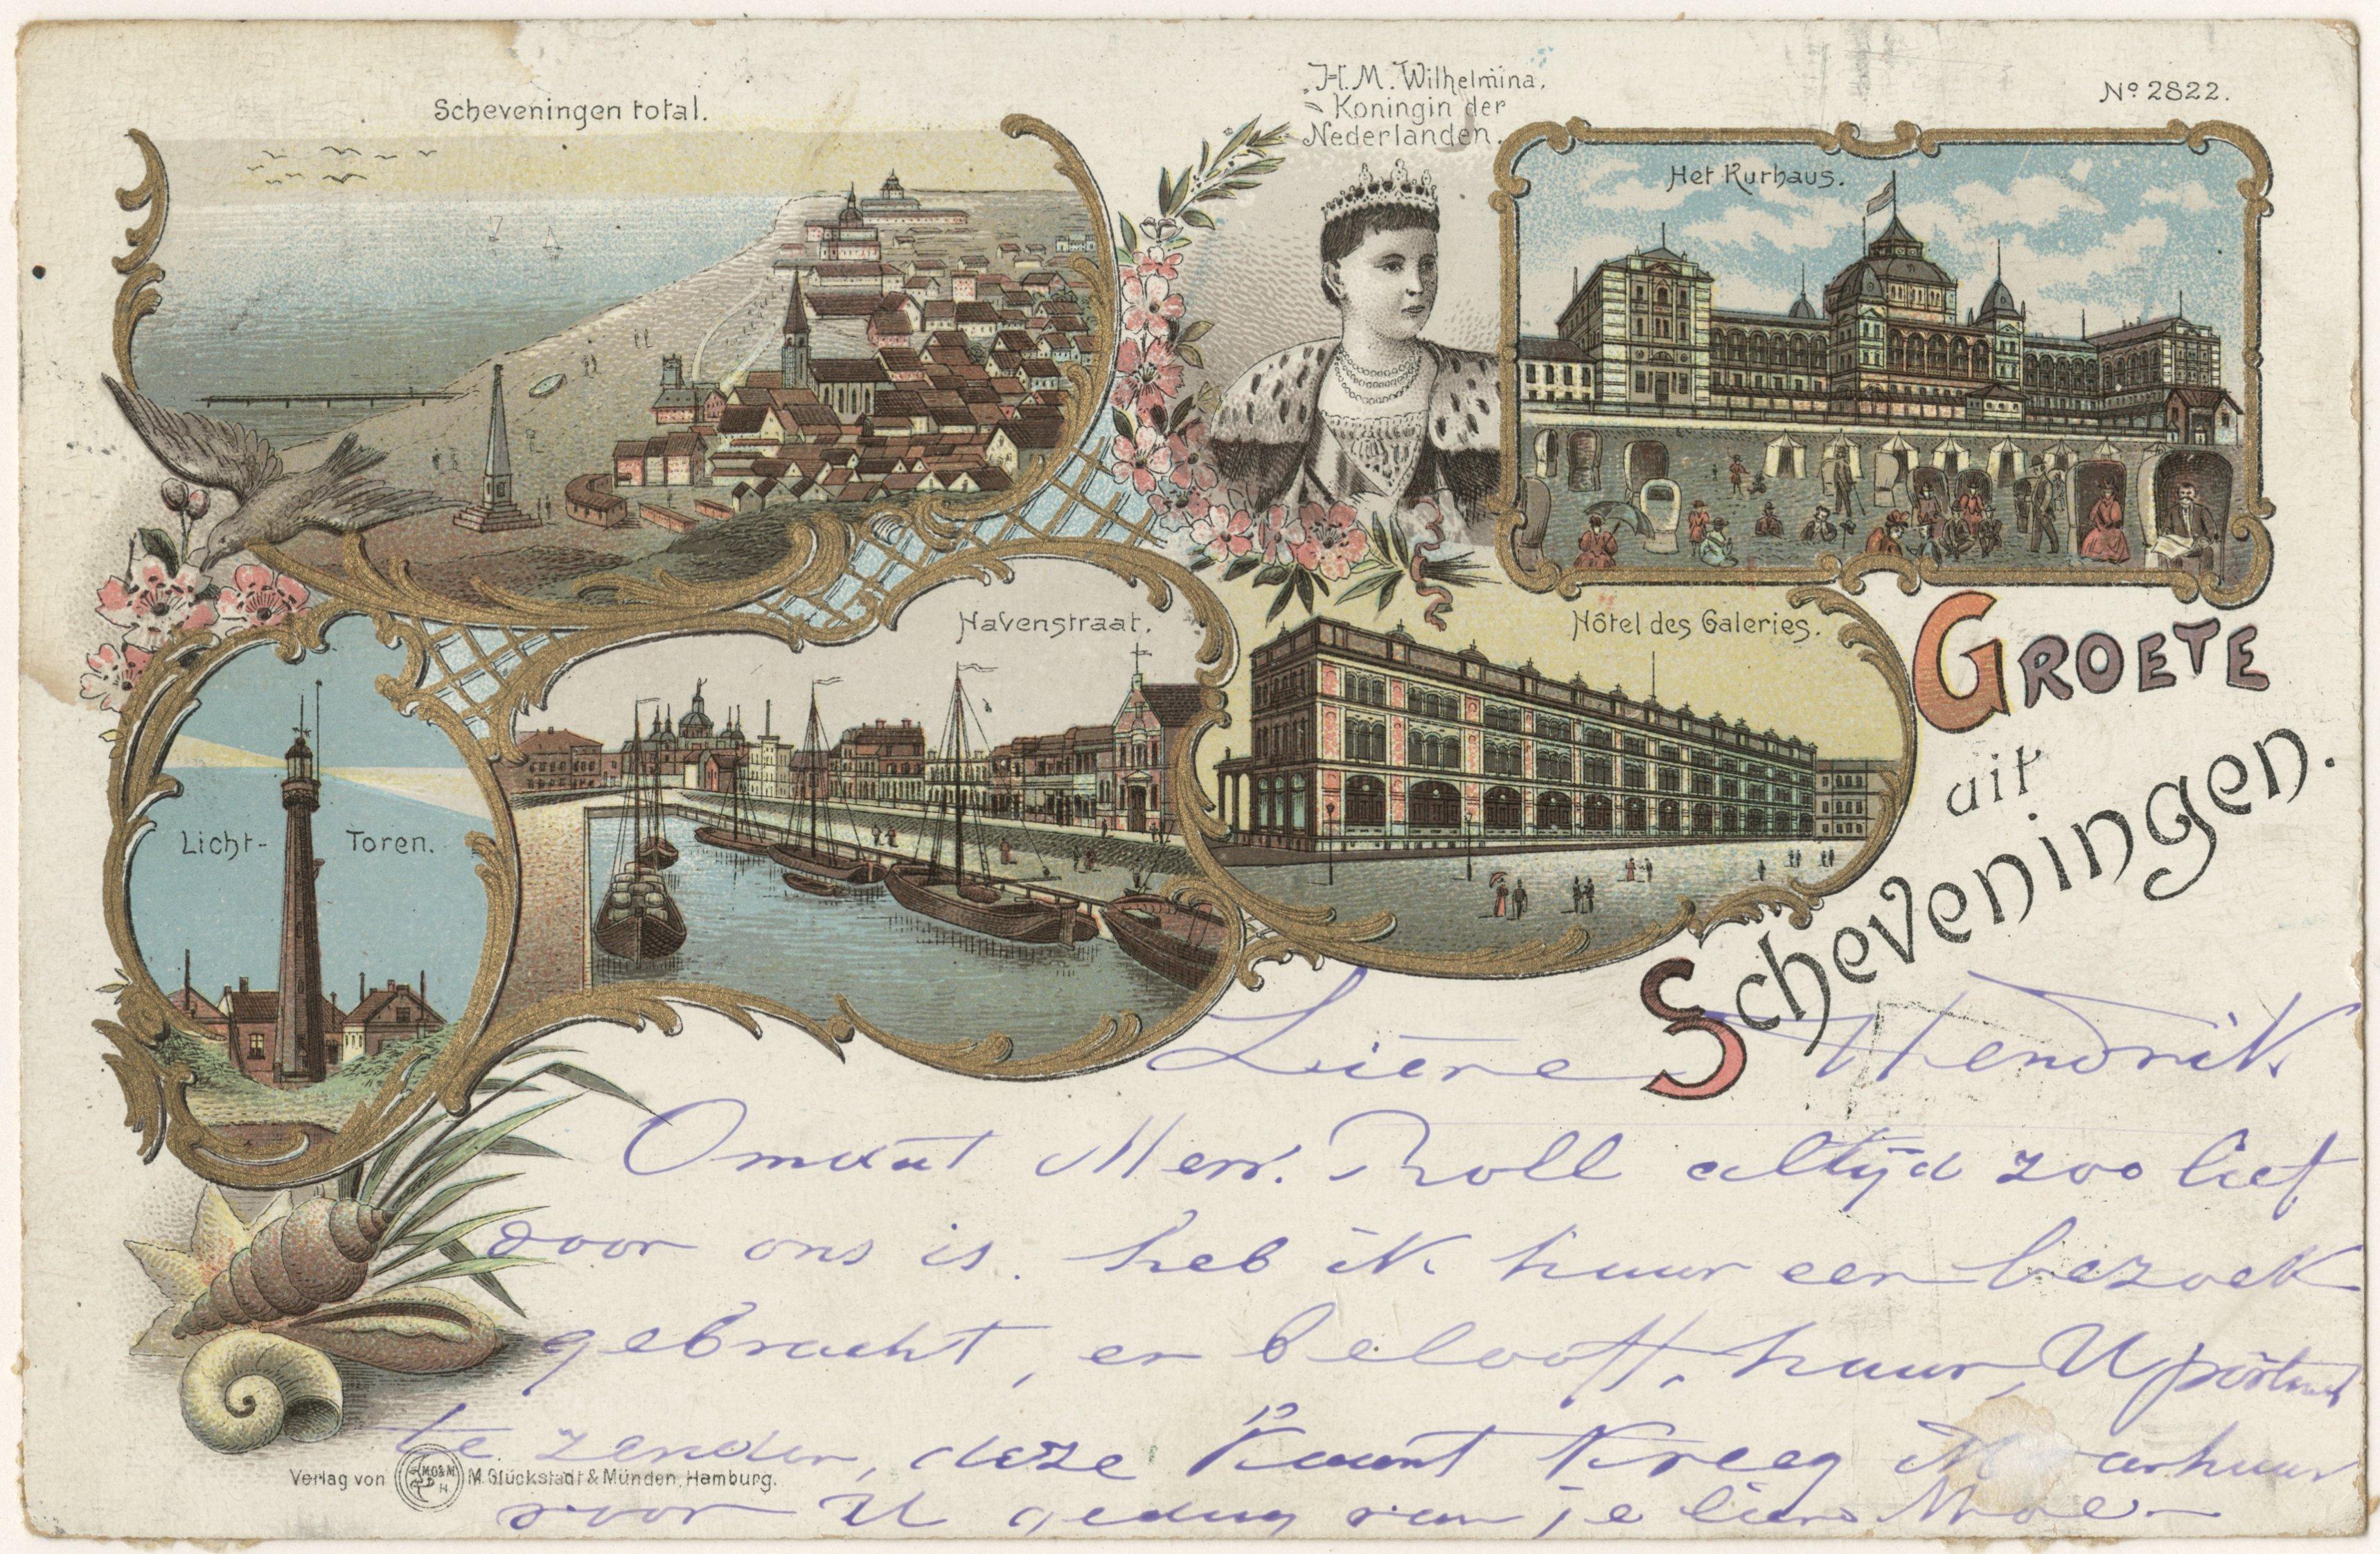 Scheveningen total.
H. M. Wilhelmina,
Koningin der
Nederlanden.
No 2822.
Het Kurhaus.
Havenstraat.
Hôtel des Galeries.
Licht-Toren.
GROETE
uit
Scheveningen.
Lieve Hendrik
Omdat Mevr. Roll altijd zoo lief
voor ons is. heb ik haar een bezoek
gebracht, en belooft, haar, U
te zenden, deze kaart kreeg ik van haar
voor U gedag van je lieve Moe
Verlag von M. Glückstadt & Münden, Hamburg.